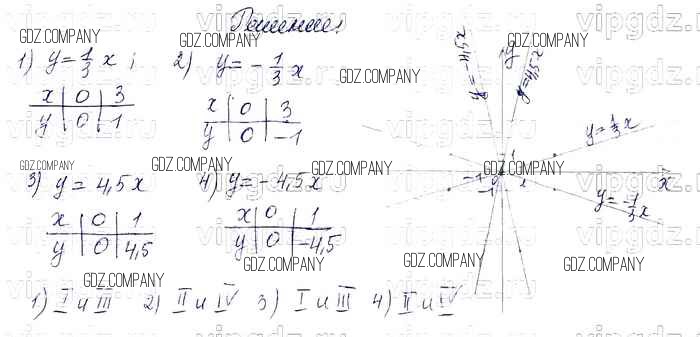 Решение:
1) y = 1/3 x ; 2) y = - 1/3 x
x | 0 | 3
y | 0 | 1
x | 0 | 3
y | 0 | -1
3) y = 4,5x 4) y = -4,5x
x | 0 | 1
y | 0 | 4,5
x | 0 | 1
y | 0 | -4,5
1) I и III 2) II и IV 3) I и III 4) II и IV
y = -4,5x
y
y = 4,5x
y = 1/3 x
1
-1 0 1 x
-1
y = -1/3 x
GDZ.COMPANY
GDZ.COMPANY
GDZ.COMPANY
GDZ.COMPANY
GDZ.COMPANY
GDZ.COMPANY
GDZ.COMPANY
GDZ.COMPANY
GDZ.COMPANY
GDZ.COMPANY
GDZ.COMPANY
GDZ.COMPANY
vipgdz.ru